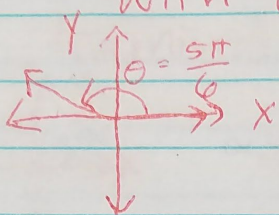 Y
θ = 5π/6
X